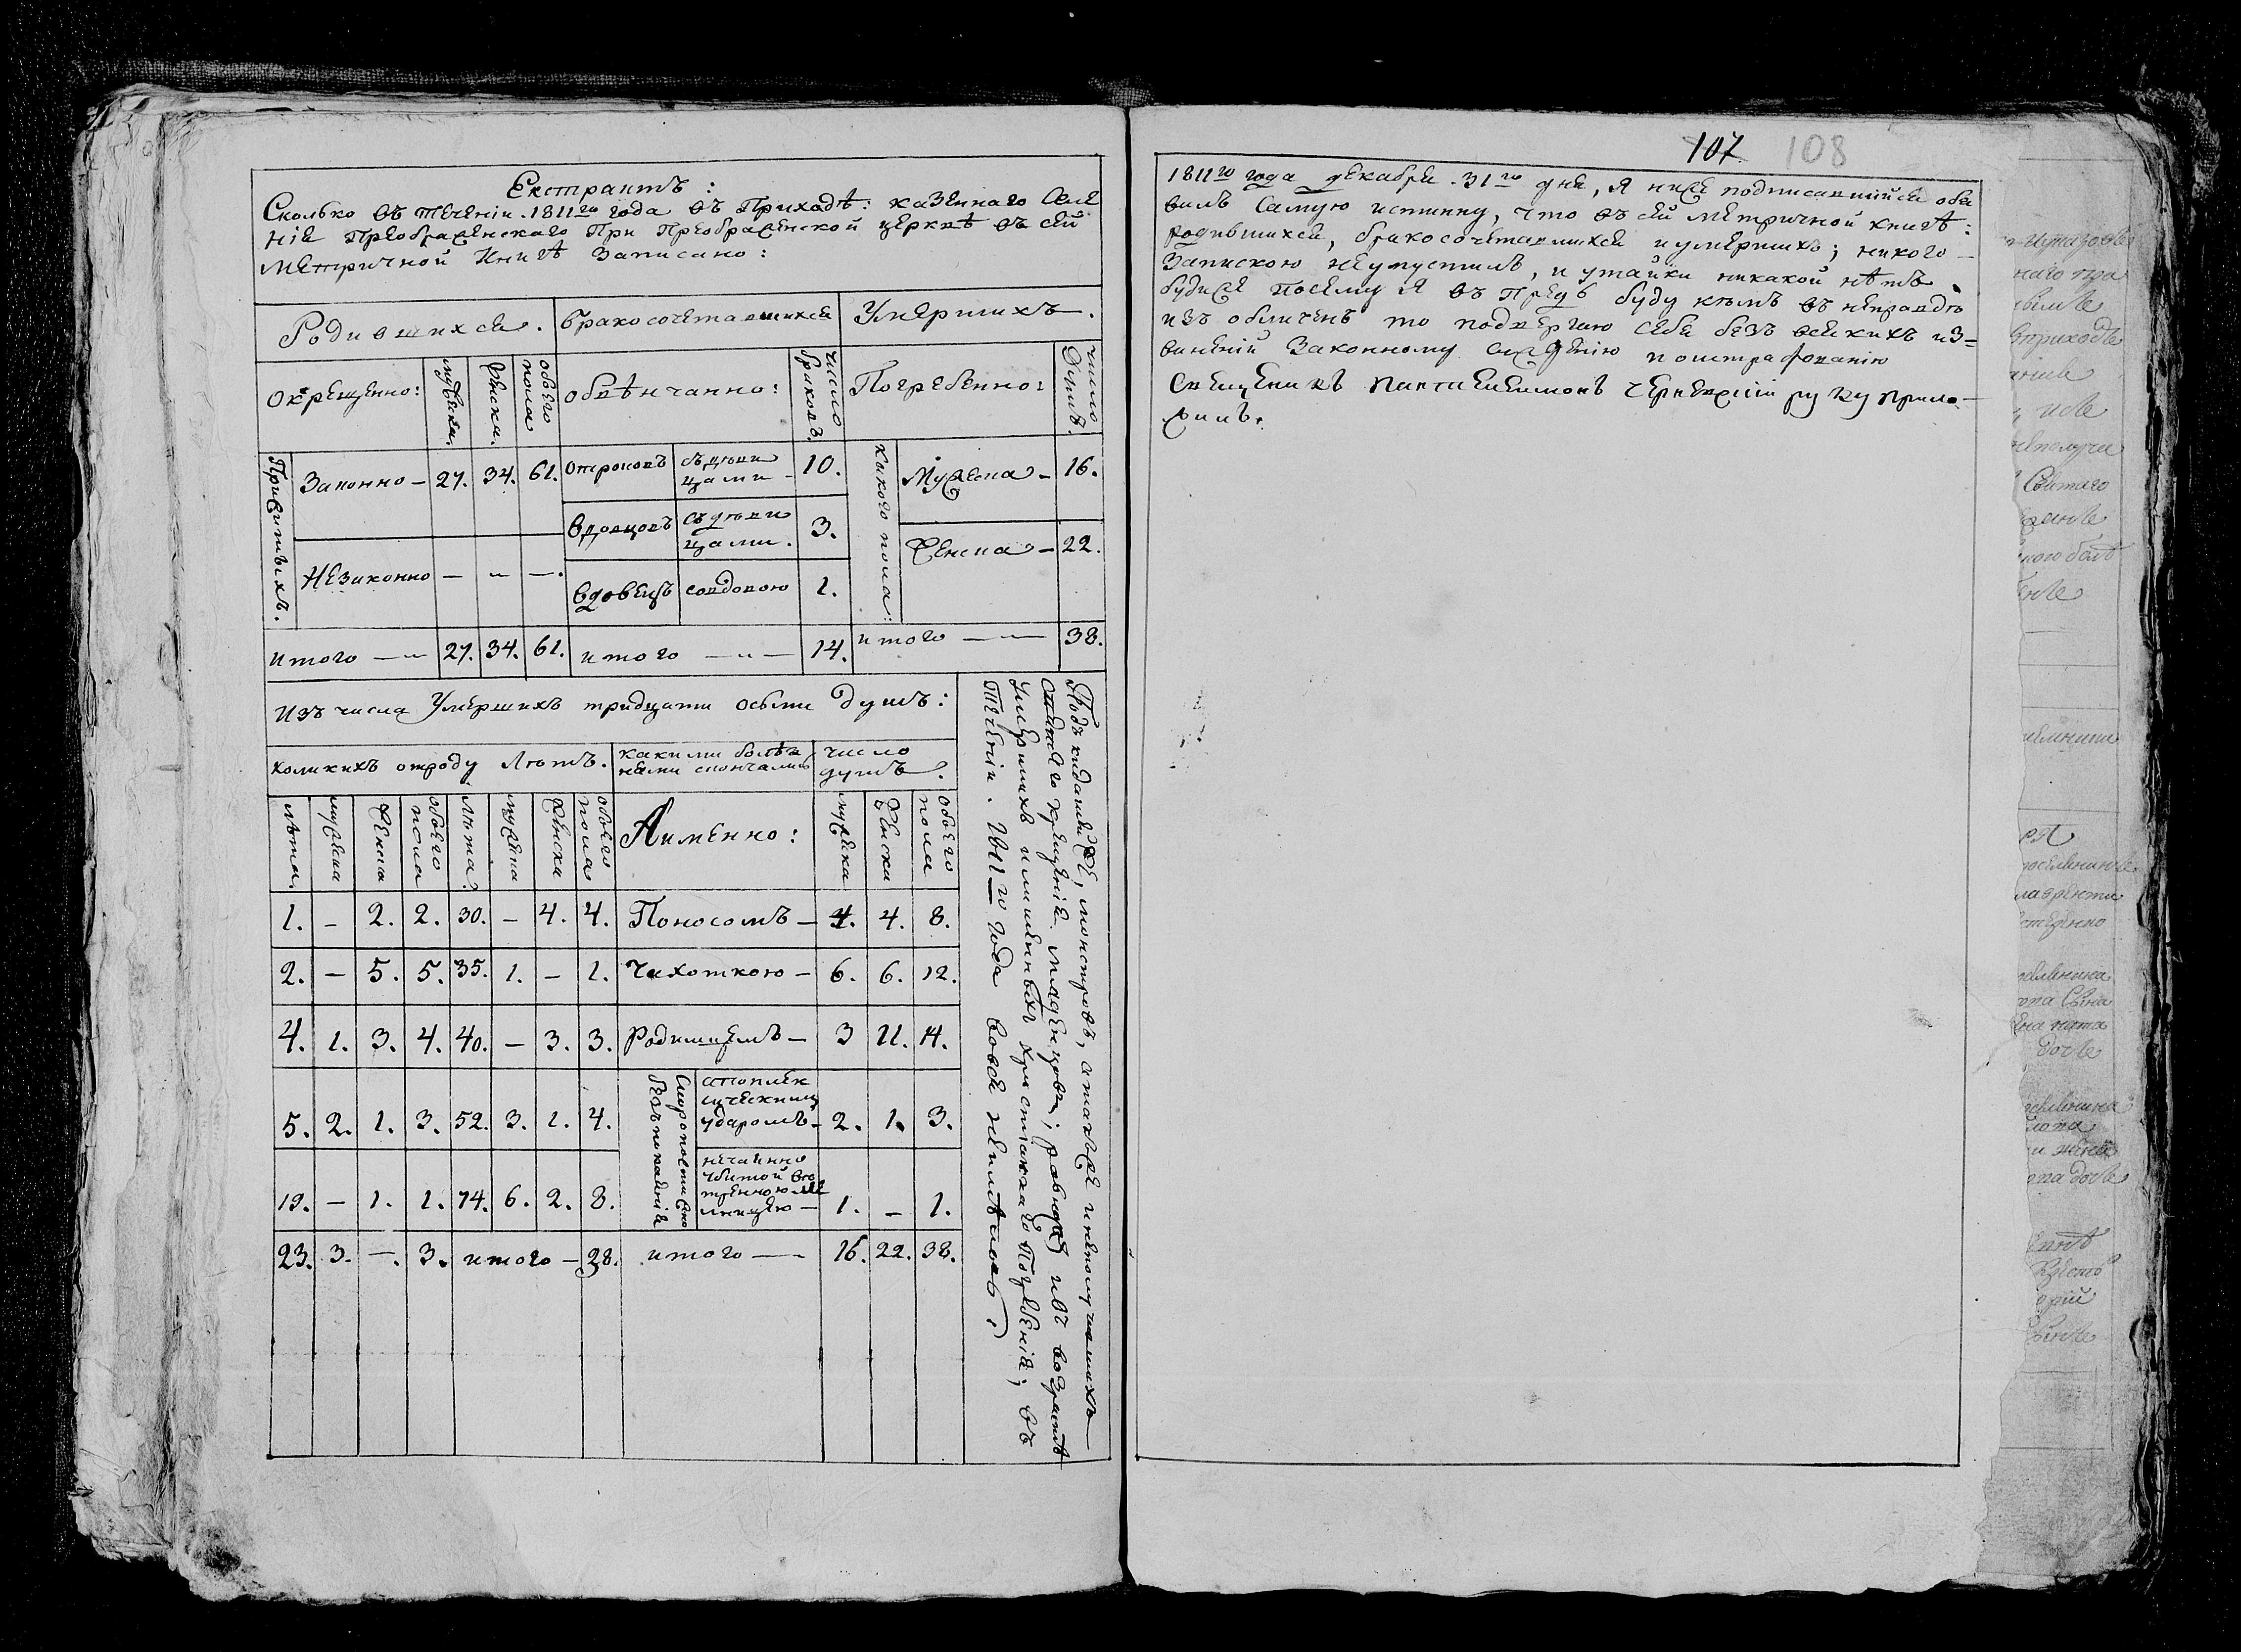 Екстрактъ:
Сколько въ теченіи 1811го года въ Приходѣ: казеннаго Селе
нія Преображенскаго При Преображенской церквѣ въ сей
Метричной Книгѣ записано:
Родившихся. бракосочетавшихся Умершихъ.
Окрещенно: мужеска. женска. обоего пола обвѣнчанно: число браковъ. Погребенно: число душъ.
Прижитыхъ. Законно — 27. 34. 61. отроковъ съ дѣви цами — 10. какого пола: Мужеска — 16.
вдовцовъ съ дѣви цами. 3. Женска — 22.
Незаконно — — —. вдовецъ совдовою 1.
итого — 27. 34. 61. итого — 14. итого — 38.
Изъ числа Умершихъ тридцати осьми душъ:
коликихъ отроду лѣтъ. какими болѣз нями скончались число душъ.
лѣта. мужеска женска обоего пола лѣта. мужеска женска обоего пола Аименно: мужеска женска обоего пола
1. — 2. 2. 30. — 4. 4. Поносомъ — 4. 4. 8.
2. — 5. 5. 35. 1. — 1. Чахоткою — 6. 6. 12.
4. 1. 3. 4. 40. — 3. 3. Родимцемъ — 3 11. 14.
5. 2. 1. 3. 52. 3. 1. 4. Скоропостижно безъ покаянія апоплек сическимъ ударомъ — 2. 1. 3.
19. — 1. 1. 74. 6. 2. 8. нечаянно убитой вѣтренною ме льницею — 1. — 1.
23. 3. —. 3. итого — 28. итого — 16. 22. 38.
Подъ кидашей же, монстровъ, атакже инеполучившихъ
Святаго крещенія младенцовъ; равнаже ивъ возрастѣ
Умершихъ илишенныхъ христіанскаго Погребенія; въ
Теченіи 1811го года вовсе неимѣлось.
107 108
1811го года декабря 31го дня, я ниже подписавшійся объя
вилъ самую истинну, что въ сей метричной книгѣ:
родившихся, бракосочетавшихся иумершихъ; никого —
запискою неупустилъ, и утайки никакой нѣтъ.
будиже посему я въ предь буду кѣмъ въ неправдѣ
изъ обличенъ то подвергаю себя безъ всякихъ из=
виненій Законному сужденію поштрафованію
Священикъ Пантелеимонъ Черневскій руку прило-
жилъ.